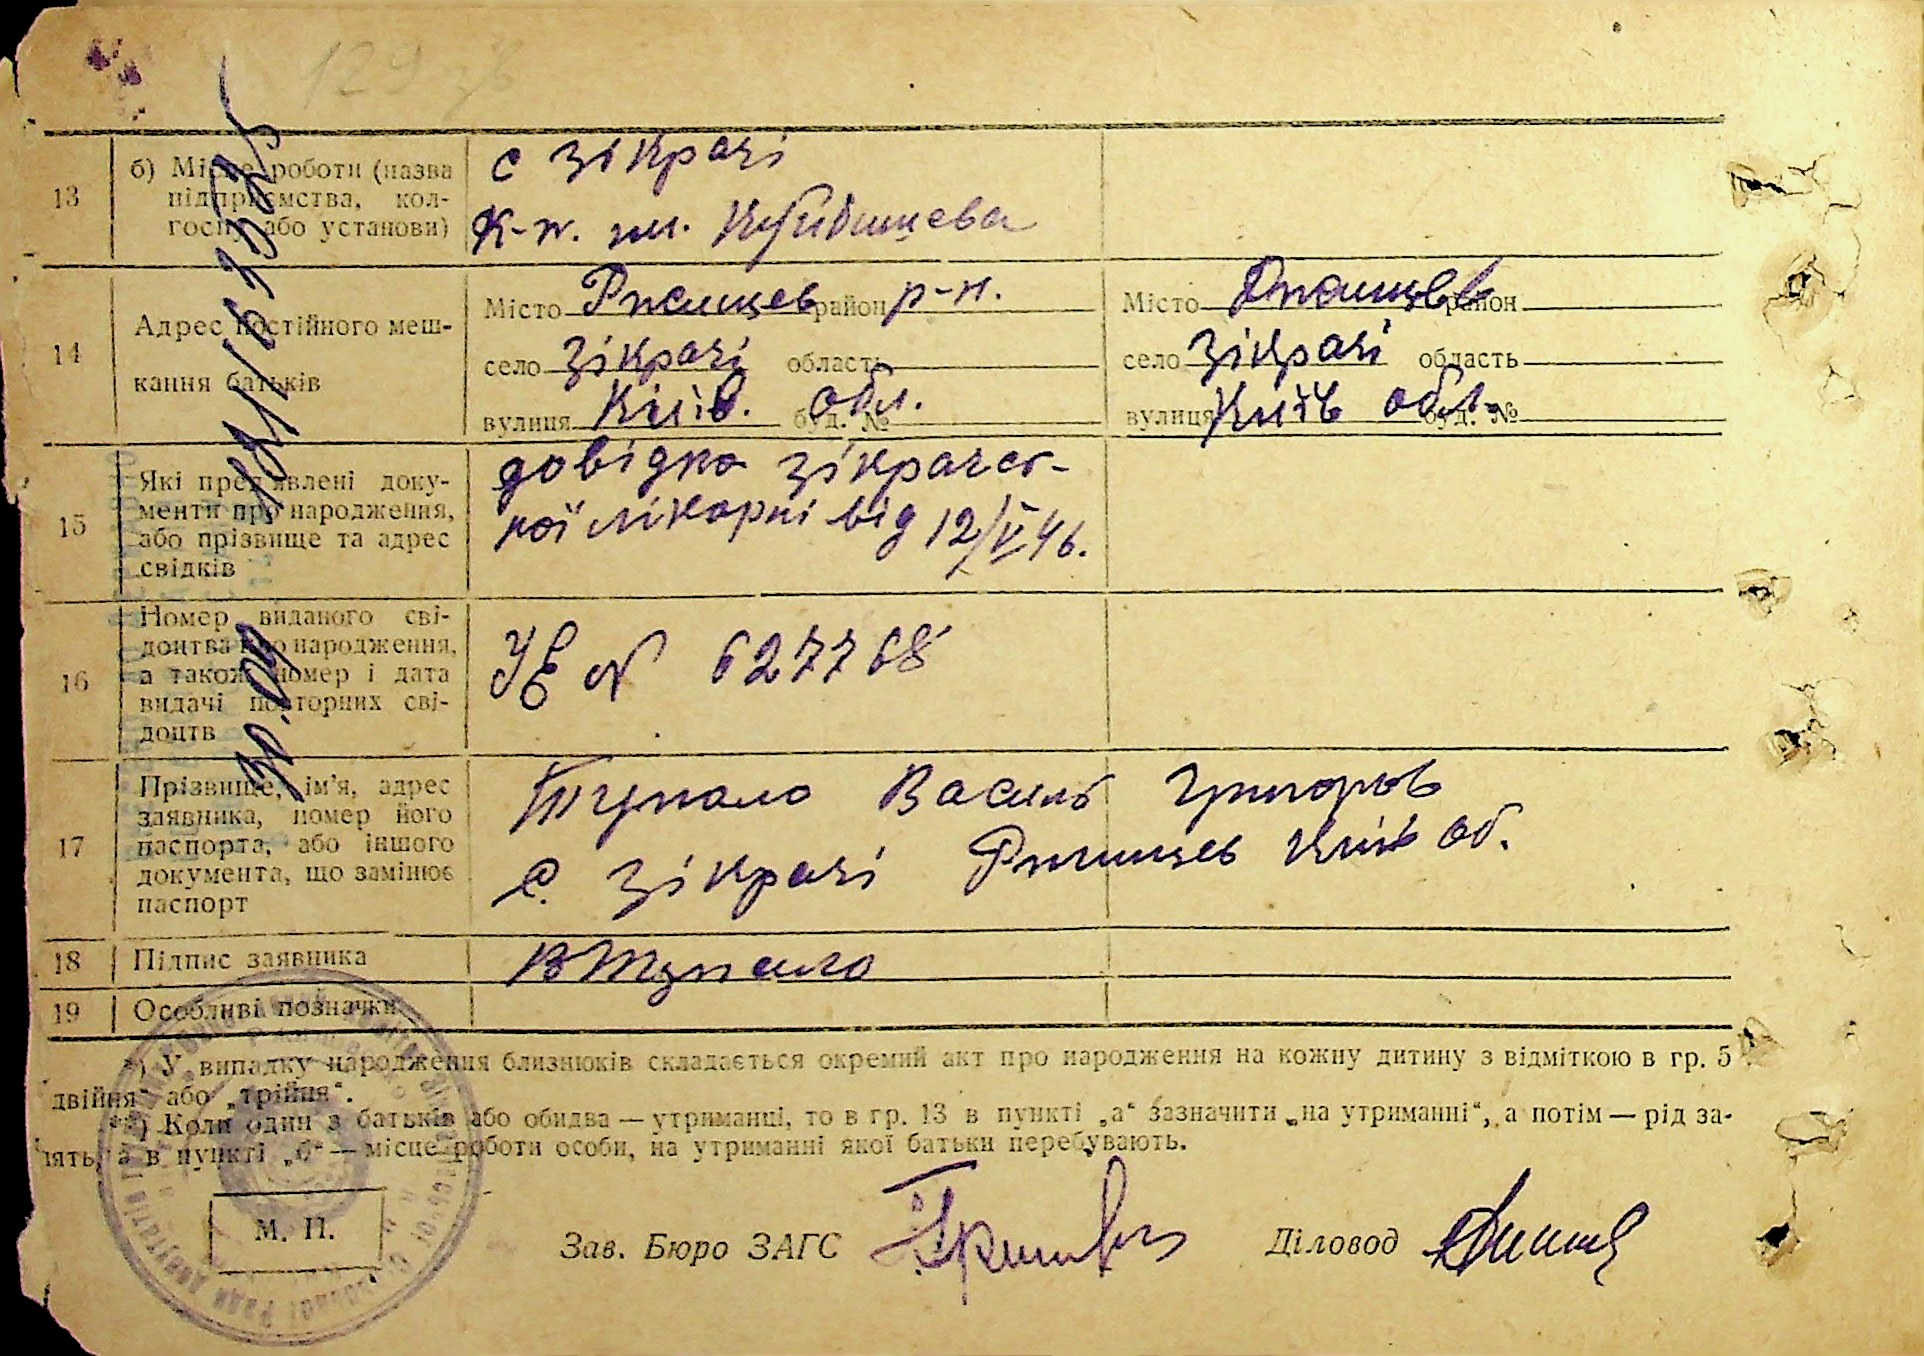 129 зв
13
б) Місце роботи (назва
підприємства, кол-
госпу або установи)
с Зікрачі
К-п. им. Куйбишева
14
Адрес постійного меш-
кання батьків
Місто Ржищев район р-н.
село Зікрачі область
вулиця Київ. обл. буд. №
Місто Ржищев район
село Зікрачі область
вулиця Київ обл. буд. №
15
Які пред'явлені доку-
менти про народження,
або прізвище та адрес
свідків
довідка Зікрачес-
кої лікарні від 12/V 46.
16
Номер виданого сві-
доцтва про народження,
а також номер і дата
видачі повторних сві-
доцтв
УЕ N 627768
17
Прізвище, ім'я, адрес
заявника, номер його
паспорта, або іншого
документа, що замінює
паспорт
Тупало Василь Григоров
с. Зікрачі Ржищев Київ об.
18
Підпис заявника
ВТупало
19
Особливі позначки
*) У випадку народження близнюків складається окремий акт про народження на кожну дитину з відміткою в гр. 5
двійня" або „трійня".
**) Коли один з батьків або обидва — утриманці, то в гр. 13 в пункті „а" зазначити „на утриманні", а потім — рід за-
нять, а в пункті „б" — місце роботи особи, на утриманні якої батьки перебувають.
М. П.
Зав. Бюро ЗАГС
Діловод